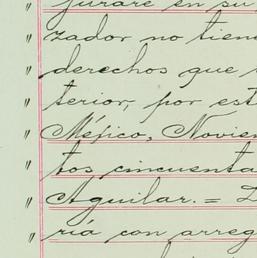 " jurare en su
" zador no tien
" derechos que
" terior, por est
" Méjico, Novien
" tos cincuenta
" Aguilar. = D
" ria con arreg